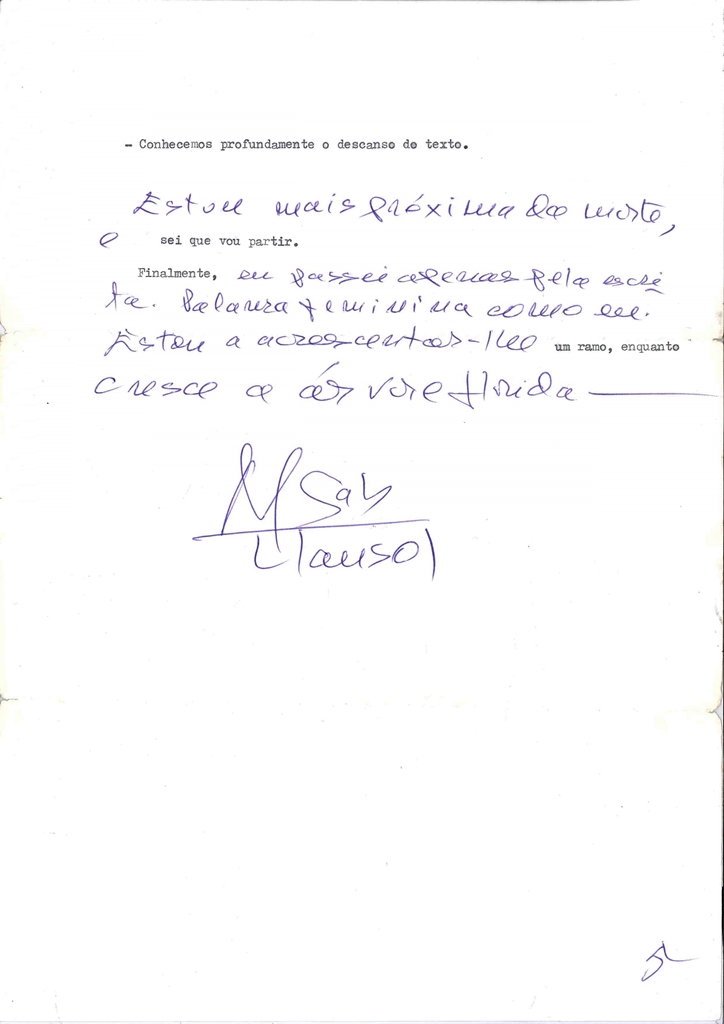 - Conhecemos profundamente o descanso do texto.
Estou mais próxima da morte,
e sei que vou partir.
Finalmente, eu passei apenas pela escri
ta. Palavra feminina como eu.
Estou a acrescentar-lhe um ramo, enquanto
cresce a árvore florida
M Gab
Llansol